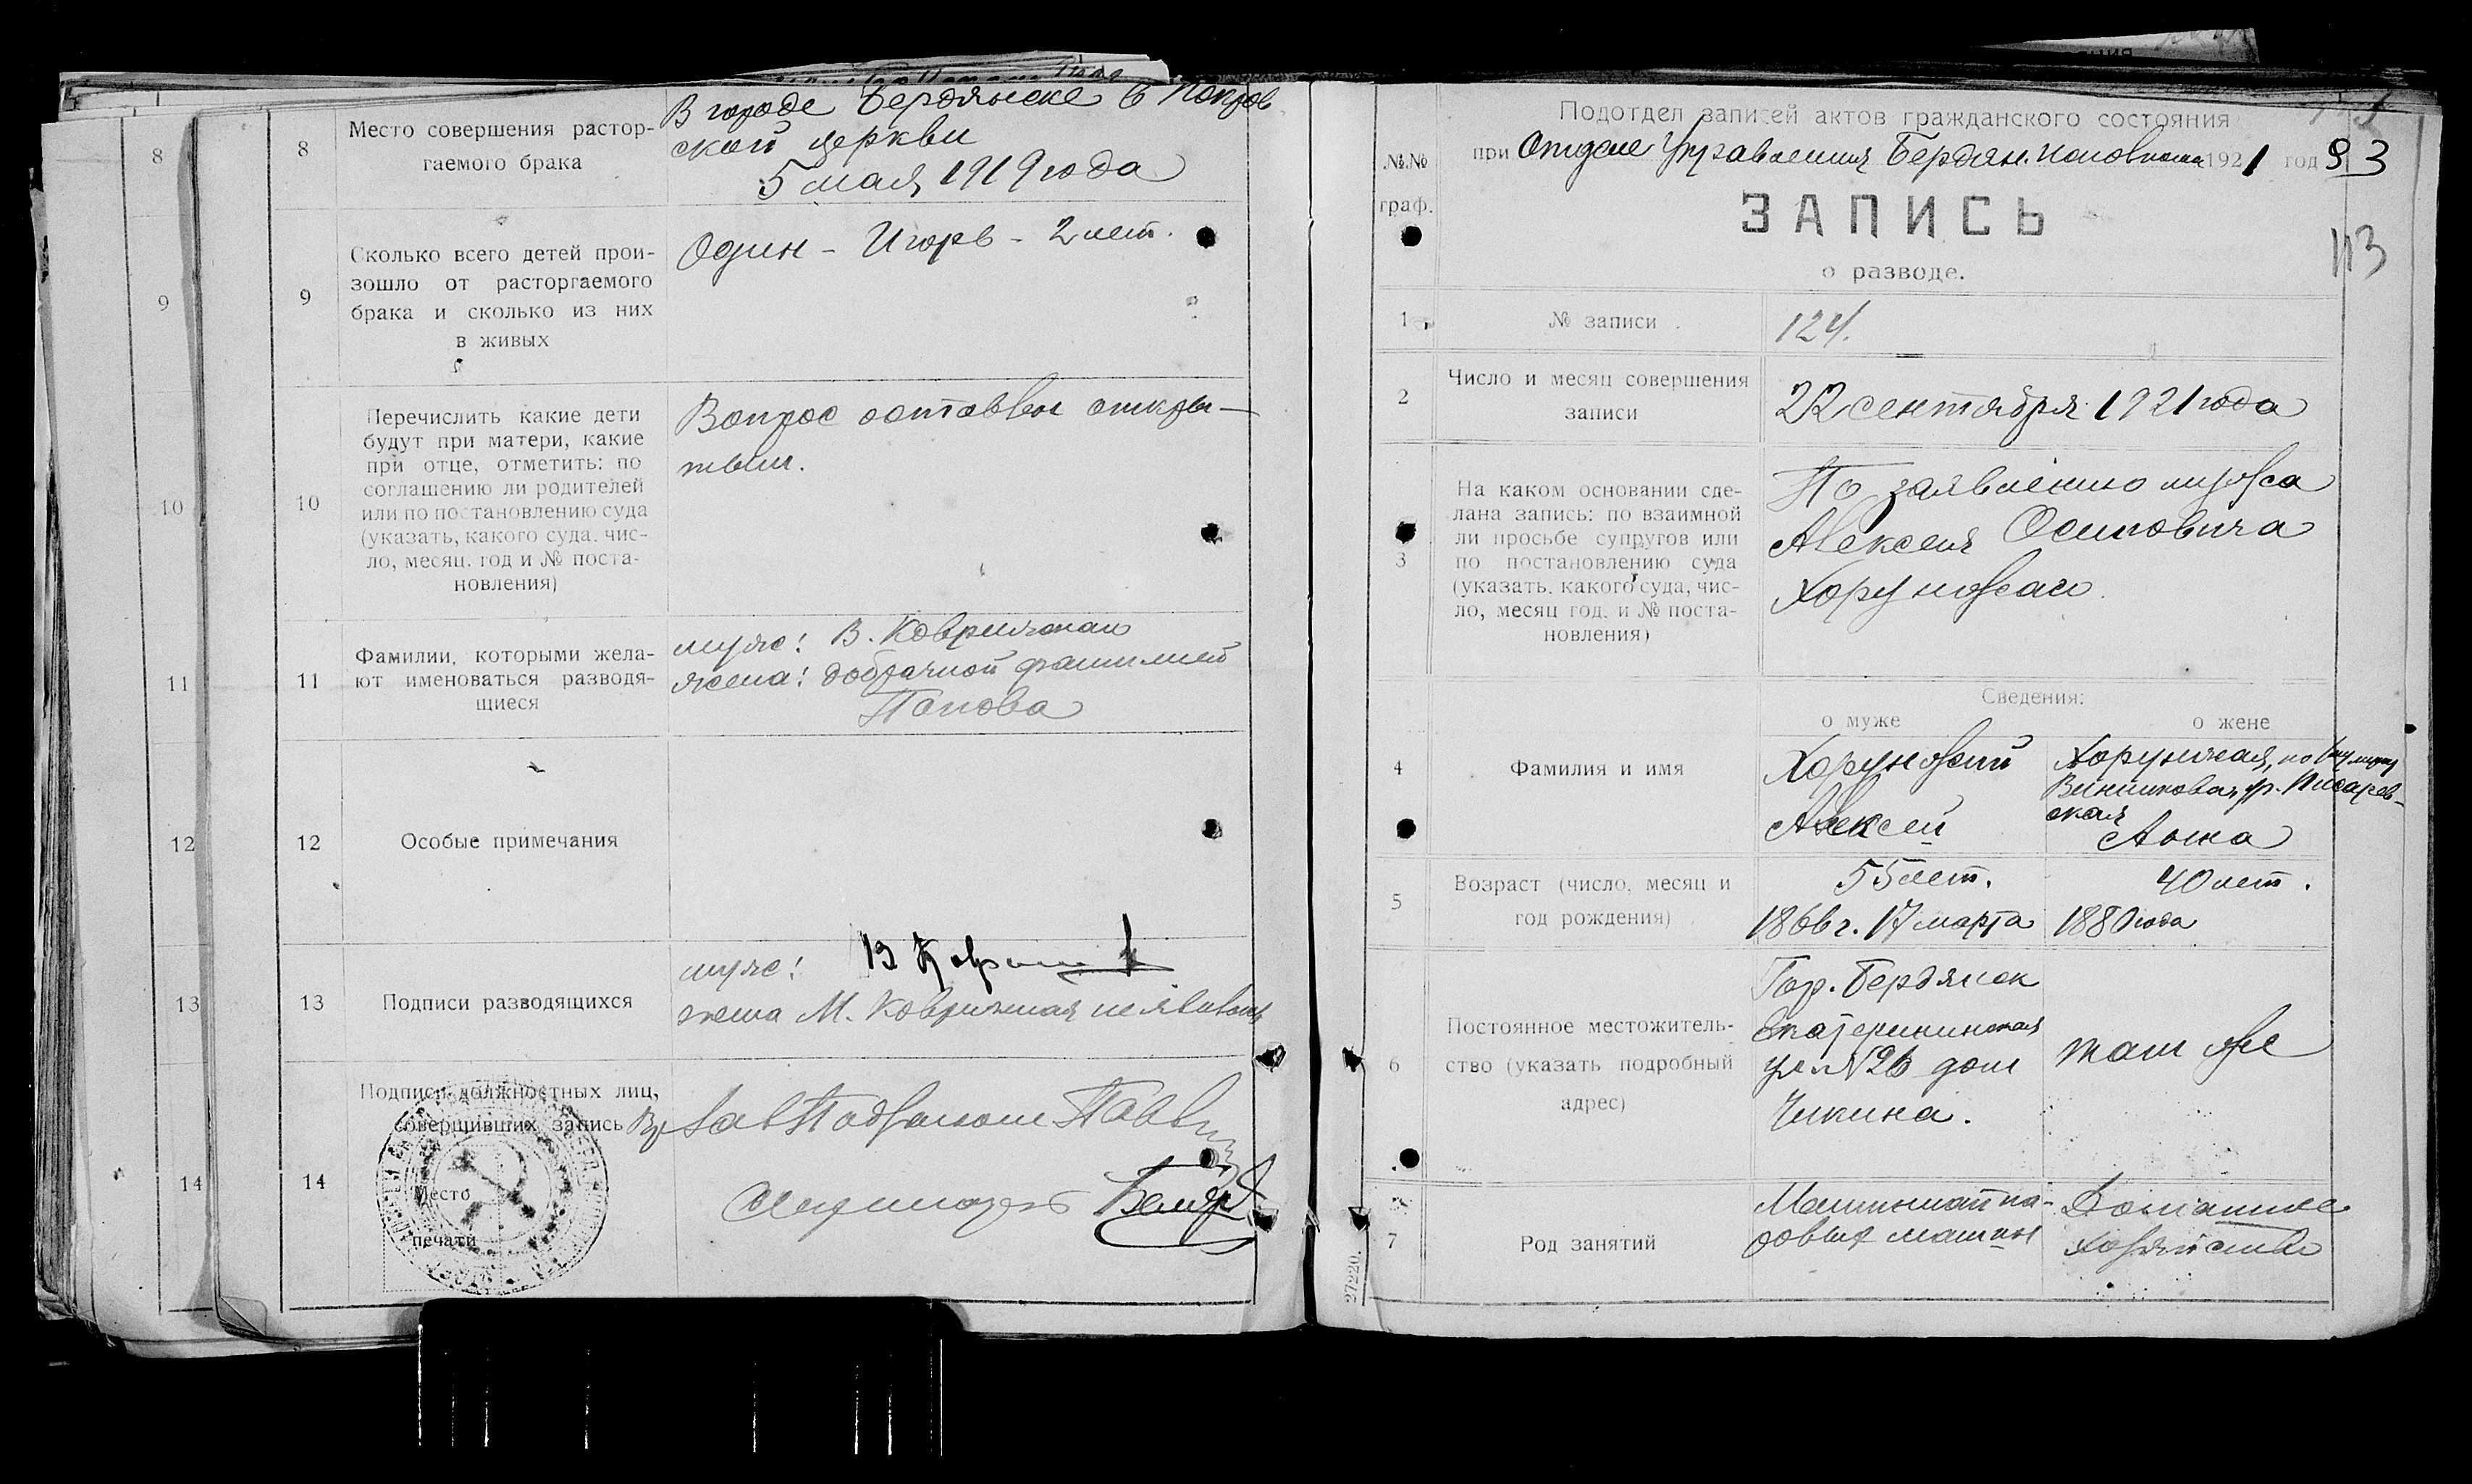 8
8
Место совершения растор-
гаемого брака
В городе Бердянске в Покров
ской церкви
5 мая 1919 года
9
9
Сколько всего детей прои-
зошло от расторгаемого
брака и сколько из них
в живых
Один - Игорь - 2 лет.
10
10
Перечислить какие дети
будут при матери, какие
при отце, отметить: по
соглашению ли родителей
или по постановлению суда
(указать, какого суда, чис-
ло, месяц, год и № поста-
новления)
Вопрос оставлен откры-
тым.
11
11
Фамилии, которыми жела-
ют именоваться разводя-
щиеся
муж: В. Коврижный
жена: добрачной фамилией
Попова
12
12
Особые примечания
13
13
Подписи разводящихся
муж:
жена М. Коврижная не явилась
14
14
Подписи должностных лиц,
совершивших запись
Место
печати
Подотдел записей актов гражданского состояния
№№
граф.
при Отделе Управления Бердян. исполкома 1921 год 93
ЗАПИСЬ
113
о разводе.
1
№ записи
124.
2
Число и месяц совершения
записи
22 сентября 1921 года
3
На каком основании сде-
лана запись: по взаимной
ли просьбе супругов или
по постановлению суда
(указать, какого суда, чис-
ло, месяц год, и № поста-
новления)
По заявлению мужа
Алексея Осиповича
Хорунжаго.
Сведения:
о муже
о жене
4
Фамилия и имя
Хорунжий
Алексей
Хорунжая, по
Винникова, ур. Писарев-
ская
Анна
5
Возраст (число, месяц и
год рождения)
55 лет.
1866 г. 17 марта
40 лет.
1880 года
6
Постоянное местожитель-
ство (указать подробный
адрес)
Гор. Бердянск
Екатерининская
ул № 26 дом
Чикина.
там же
7
Род занятий
Машинист па-
ровых машин
Домашнее
хозяйство
27220.